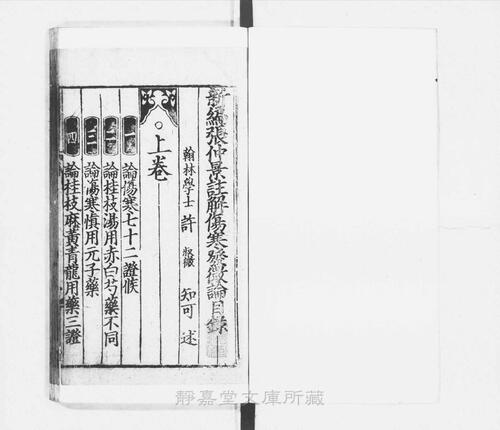 新編張仲景註解傷寒發微論目錄
翰林學士 許 叔微 知可 述
○上卷
一 論傷寒七十二證候
二 論桂枝湯用赤白芍藥不同
三 論傷寒慎用元子藥
四 論桂枝麻黃青龍用藥三證
靜嘉堂文庫所藏